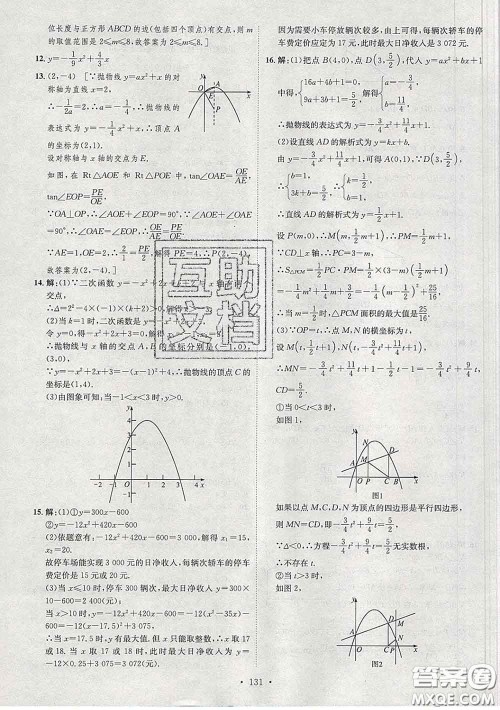 位长度与正方形 ABCD 的边(包括四个顶点)有交点,则 m
的取值范围是 2≤m≤8,故答案为 2≤m≤8.]
12. y=-1/9x²+4/3x
13. (2,-4) [∵抛物线 y=ax²+x 的对
称轴为直线 x=2,
∴-1/2a=2,∴a=-1/4,∴抛物线的
表达式为 y=-1/4x²+x,∴顶点 A
的坐标为(2,1).
设对称轴与 x 轴的交点为 E.
如图,在 Rt△AOE 和 Rt△POE 中,tan∠OAE=OE/AE,
tan∠EOP=PE/OE.
∵OA⊥OP,∴∠OAE=∠EOP=90°,∴OE/AE=PE/OE.
∵AE=1,OE=2,∴2/1=PE/2,解得 PE=4,∴P(2,-4).
故答案为(2,-4).]
14. 解:(1)∵二次函数 y=-x²+2x+m 的图象与 x 轴有
交点,
∴Δ=2²-4×(-1)(k+2)>0,
(2)当 k=1 时,二次函数
令 y=0,得-x²+2x+3=0,解得
∴抛物线与 x 轴的交点 A,B 的坐标分别是(-1,0),
(3,0).
∵y=-x²+2x+3=-(x-1)²+4,∴抛物线的顶点 C 的
坐标是(1,4).
(3)由图象可知:当-1<x<3 时,y>0.
15. 解:(1)①y=300x-600
②y=-12x²+420x-600
(2)依题意有:-12x²+420x-600=3 000,解得 x₁=15,
x₂=20.
故停车场能实现 3 000 元的日净收入,每辆次轿车的停车
费定价是 15 元或 20 元.
(3)当 x≤10 时,停车 300 辆次,最大日净收入 y=300×
10-600=2 400(元).
当 x>10 时,y=-12x²+420x-600=-12(x²-35x)
-600=-12(x-17.5)²+3 075.
∴当 x=17.5 时,y 有最大值.但 x 只能取整数,∴x 取 17
或 18.当 x=17 或 18 时,最大日净收入为 y=
-12×0.25+3 075=3 072(元).
因为需要小车停放辆次较多,由上可得,每辆次轿车的停
车费定价应定为 17 元,此时最大日净收入是 3 072 元.
16. 解:(1)把点 B(4,0),点 D(3,5/2),代入 y=ax²+bx+1
中得,{16a+4b+1=0, 9a+3b+1=5/2, 解得{a=-3/4, b=11/4,
∴抛物线的表达式为 y=-3/4x²+11/4x+1.
(2)设直线 AD 的解析式为 y=kx+b,
由(1)y=-3/4x²+11/4x+1,可得 A(0,1),∵D(3,5/2),
∴{b=1, 3k+b=5/2, ∴{k=1/2, b=1.
∴直线 AD 的解析式为 y=1/2x+1.
设 P(m,0),∵CD∥x 轴,∴M(m,1/2m+1),PM=1/2m+1.
∴CD⊥x 轴,∴PC=3-m,
∴S△PCM=1/2PC×PM=1/2×(3-m)(1/2m+1),
∴S△PCM=-1/4m²+1/4m+3/2=-1/4(m-1/2)²+25/16.
∴当 m=1/2 时,△PCM 面积的最大值是 25/16.
(3)∵OP=t,∴点 M,N 的横坐标为 t.
设 M(t,1/2t+1),N(t,-3/4t²+11/4t+1),
∴MN=-3/4t²+11/4t+1-1/2t-1=-3/4t²+9/4t,
CD=5/2.
①当 0<t<3 时,如图 1,
图1
如果以点 M,C,D,N 为顶点的四边形是平行四边形,
则 MN=CD,即-3/4t²+9/4t=5/2.
∵Δ<0,∴方程-3/4t²+9/4t=5/2 无实数根,
∴不存在 t.
②当 t>3 时,如图 2,
图2
131
互助文档
答案圈
MXQE.COM